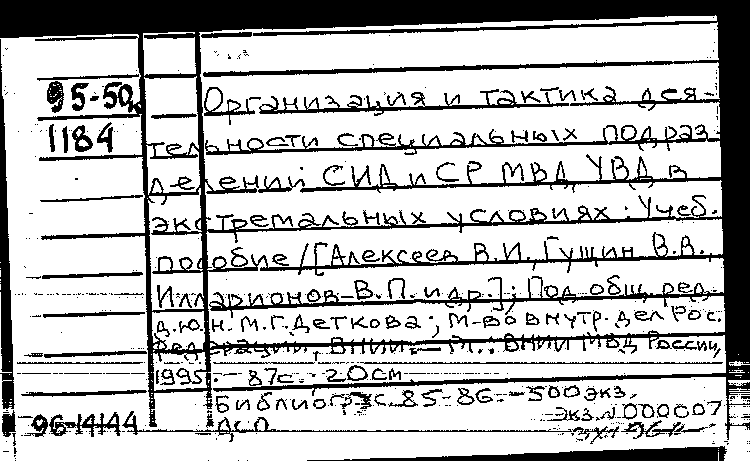 95-50
1184
Организация и тактика дея-
тельности специальных подраз-
делений СИД и СР МВД, УВД в
экстремальных условиях: Учеб.
пособие / [Алексеев В.И., Гущин В.В.,
Илларионов В.П. и др.]; Под общ. ред.
д.ю.н. М.Г. Деткова; М-во внутр. дел Рос.
Федерации, ВНИИ. – М.: ВНИИ МВД России,
1995. – 87с. 20см.
Библиогр.: с. 85-86. – 500 экз.
Экз. N 000007
ДСП
96-14144